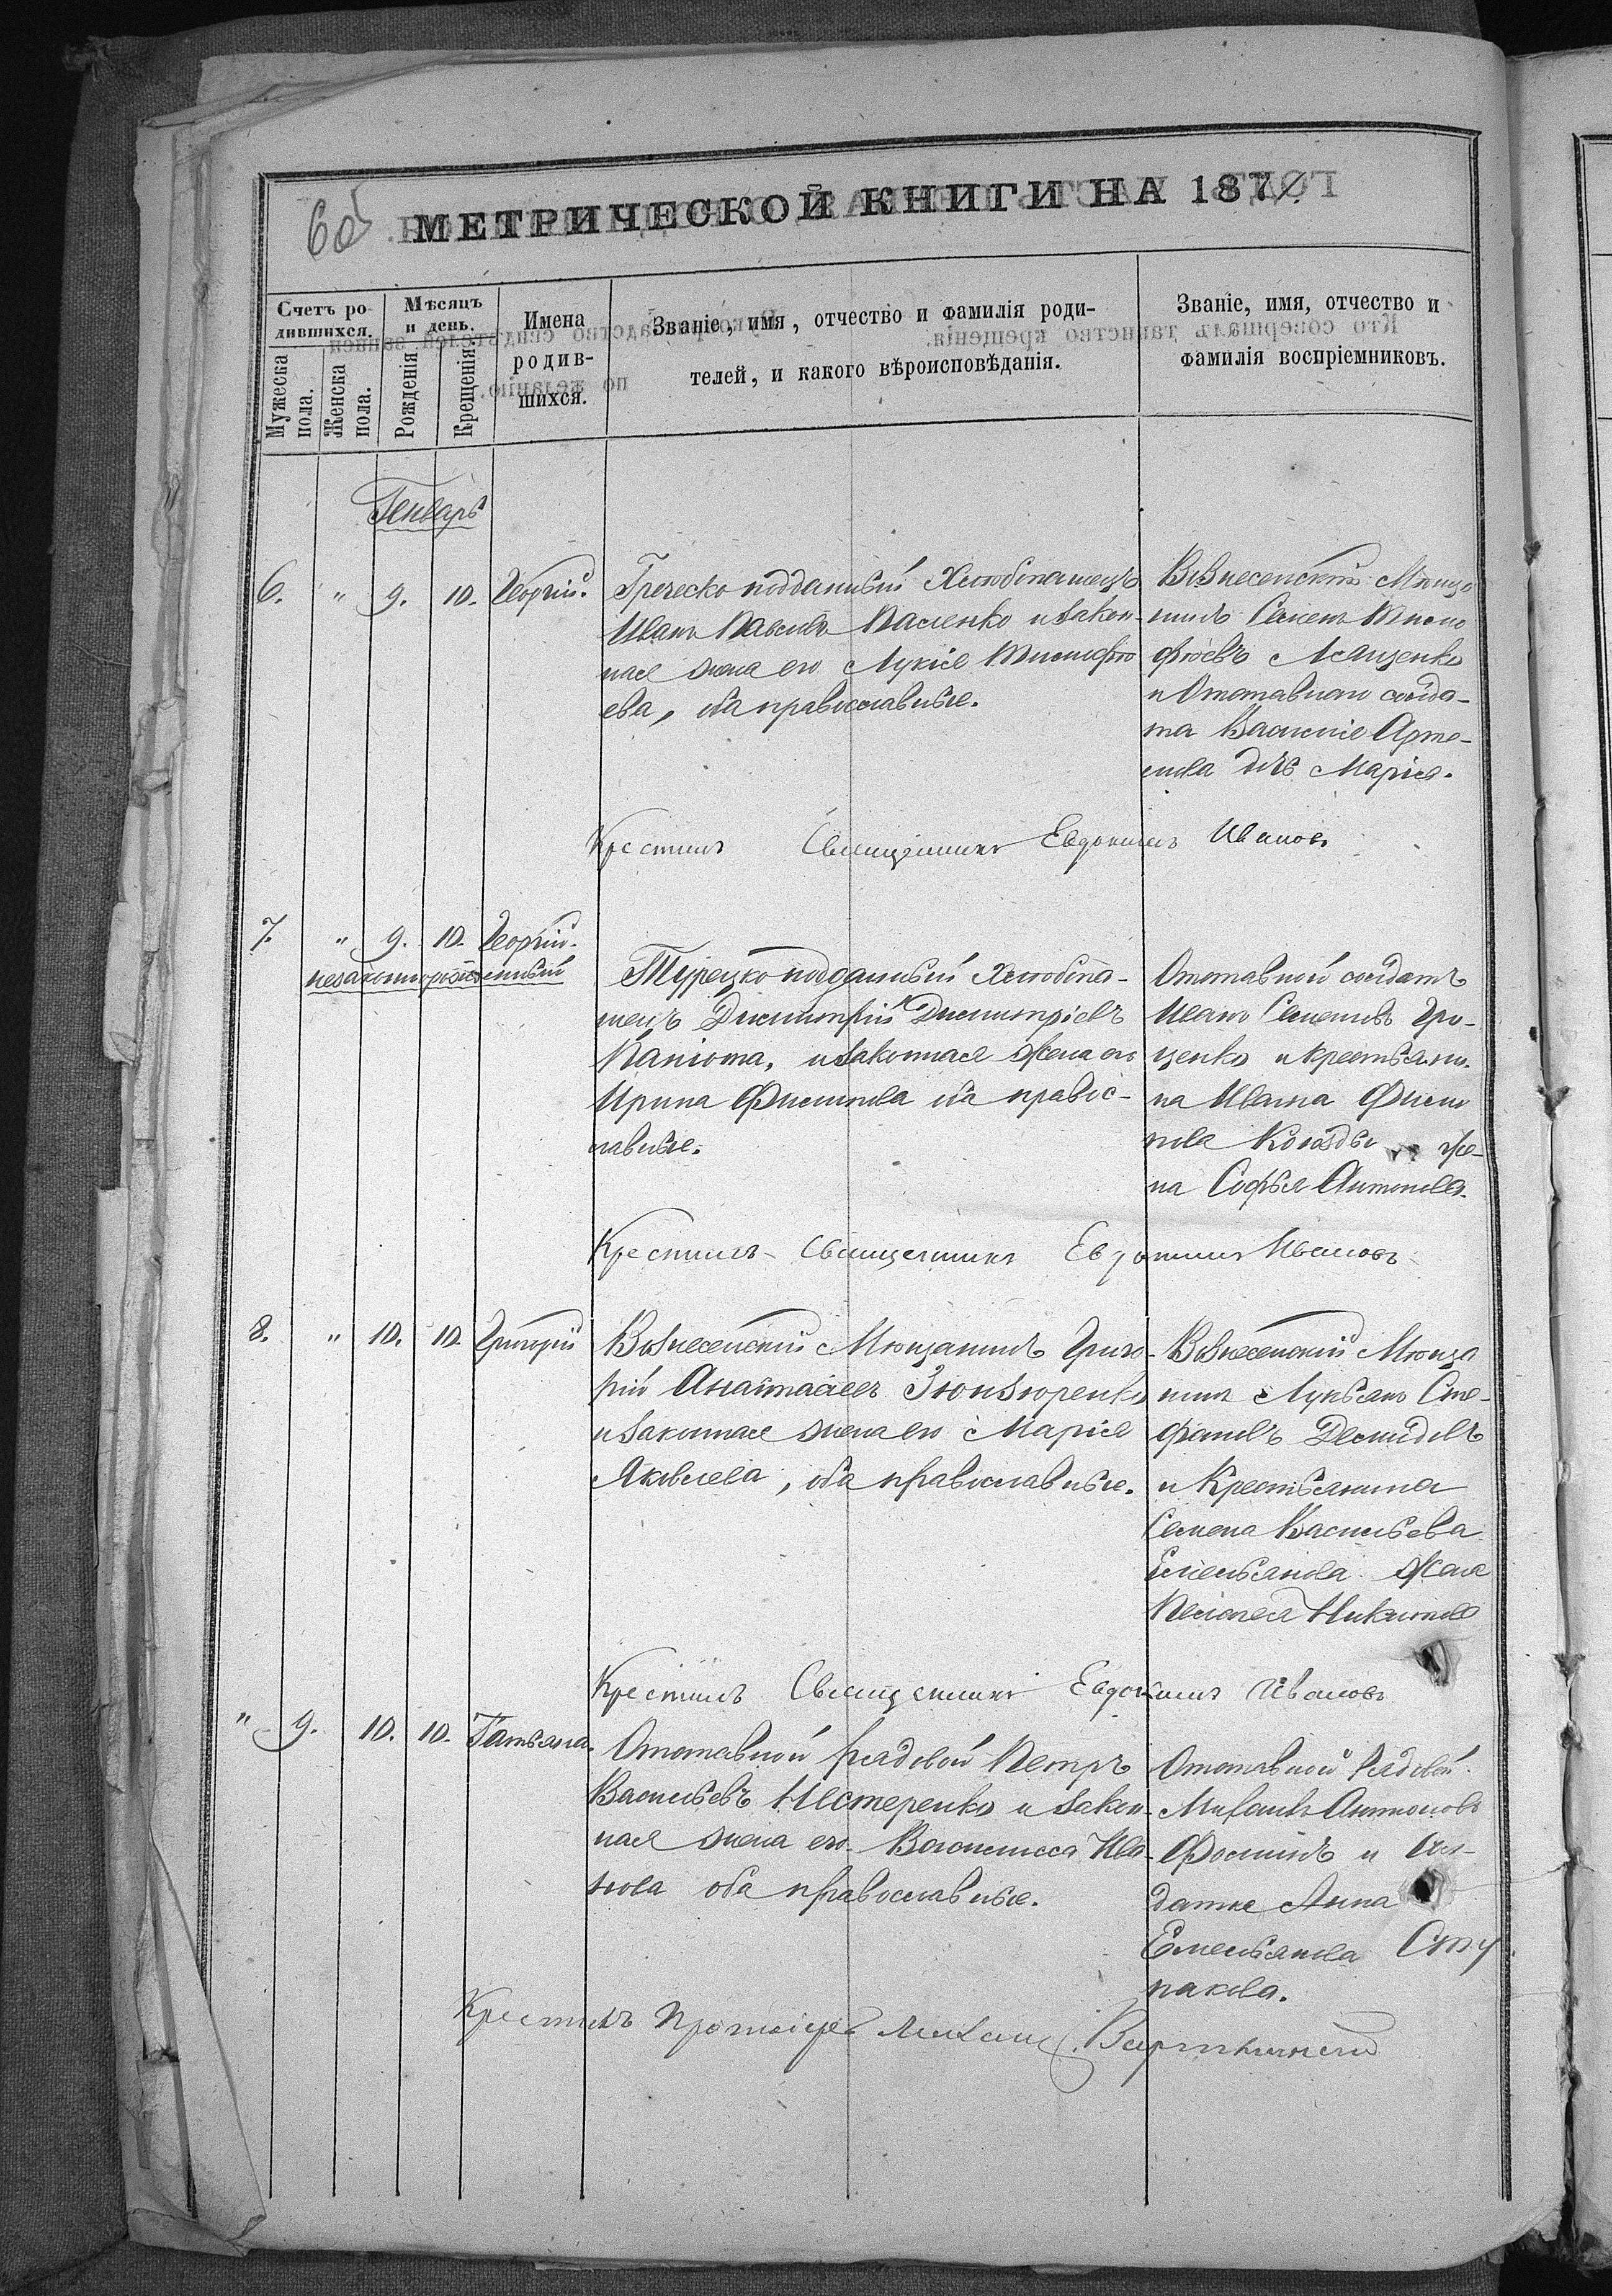 605
МЕТРИЧЕСКОЙ КНИГИ НА 187
Счетъ ро-
дившихся.
Мужеска
пола.
Женска
пола.
Мѣсяцъ
и день.
Рожденія
Крещенія.
Имена
родив-
шихся.
Званіе, имя, отчество и фамилія роди-
телей, и какого вѣроисповѣданія.
Званіе, имя, отчество и
фамилія воспріемниковъ.
Генварь
6. " 9. 10. Георгій.
Греческо подданный
Иванъ Павловъ Павленко и закон-
ная жена его Лукія Тимофѣ
ева, оба православные.
Вознесенскій Мѣща
нинъ Семенъ Тимо
фѣевъ
и Отставнаго солда-
та Василія Арте-
дчь Марія.
Крестилъ Священникъ Евдокимъ Ивановъ
7. " 9. 10. Георгій.
незаконнорожденный
Турецко подданный
Димитрій Димитріевъ
и законная жена его
Ирина Филипова оба правос-
лавные.
Отставной солдатъ
Иванъ Семеновъ Гри-
ценко и крестьяни-
на Ивана Фили
пова же-
на Софья Антонова.
Крестилъ Священникъ Евдокимъ Ивановъ
8. " 10. 10. Григорій
Вознесенскій Мѣщанинъ Григо-
рій
и законная жена его Марія
Яковлева, оба православные.
Вознесенскій Мѣща
нинъ Лукьянъ Сте-
фановъ Демидовъ
и Крестьянина
Семена Васильева
Емельянова жена
Пелагея
Крестилъ Священникъ Евдокимъ Ивановъ
" 9. 10. 10. Татьяна.
Отставной рядовой Петръ
Васильевъ Нестеренко и закон-
ная жена его Ива-
нова оба православные.
Отставной Рядовой
Михаилъ Антоновъ
Фоминъ и Сол-
датка Анна
Емельянова Сту
пакова.
Крестилъ Протоіерей Михаилъ